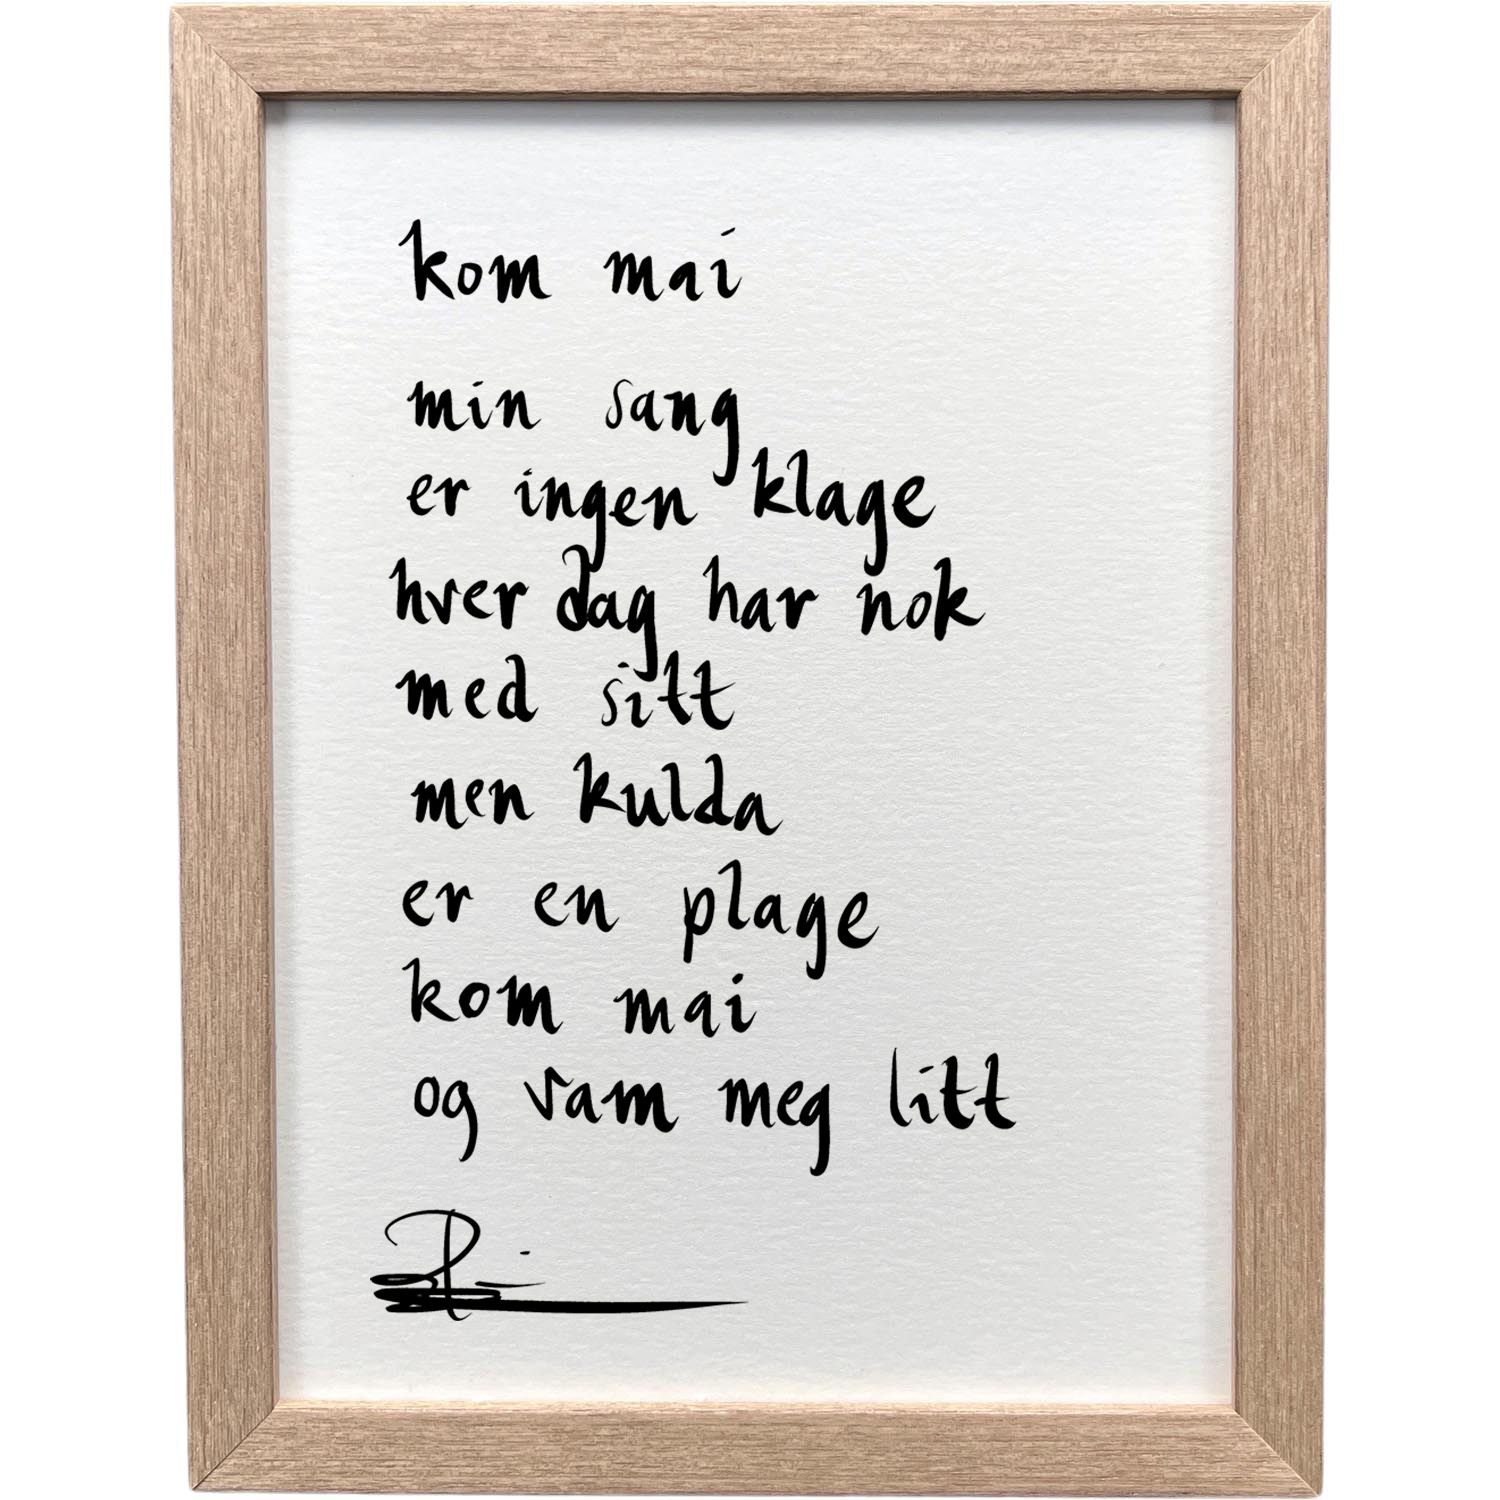 kom mai
min sang
er ingen klage
hver dag har nok
med sitt
men kulda
er en plage
kom mai
og varm meg litt